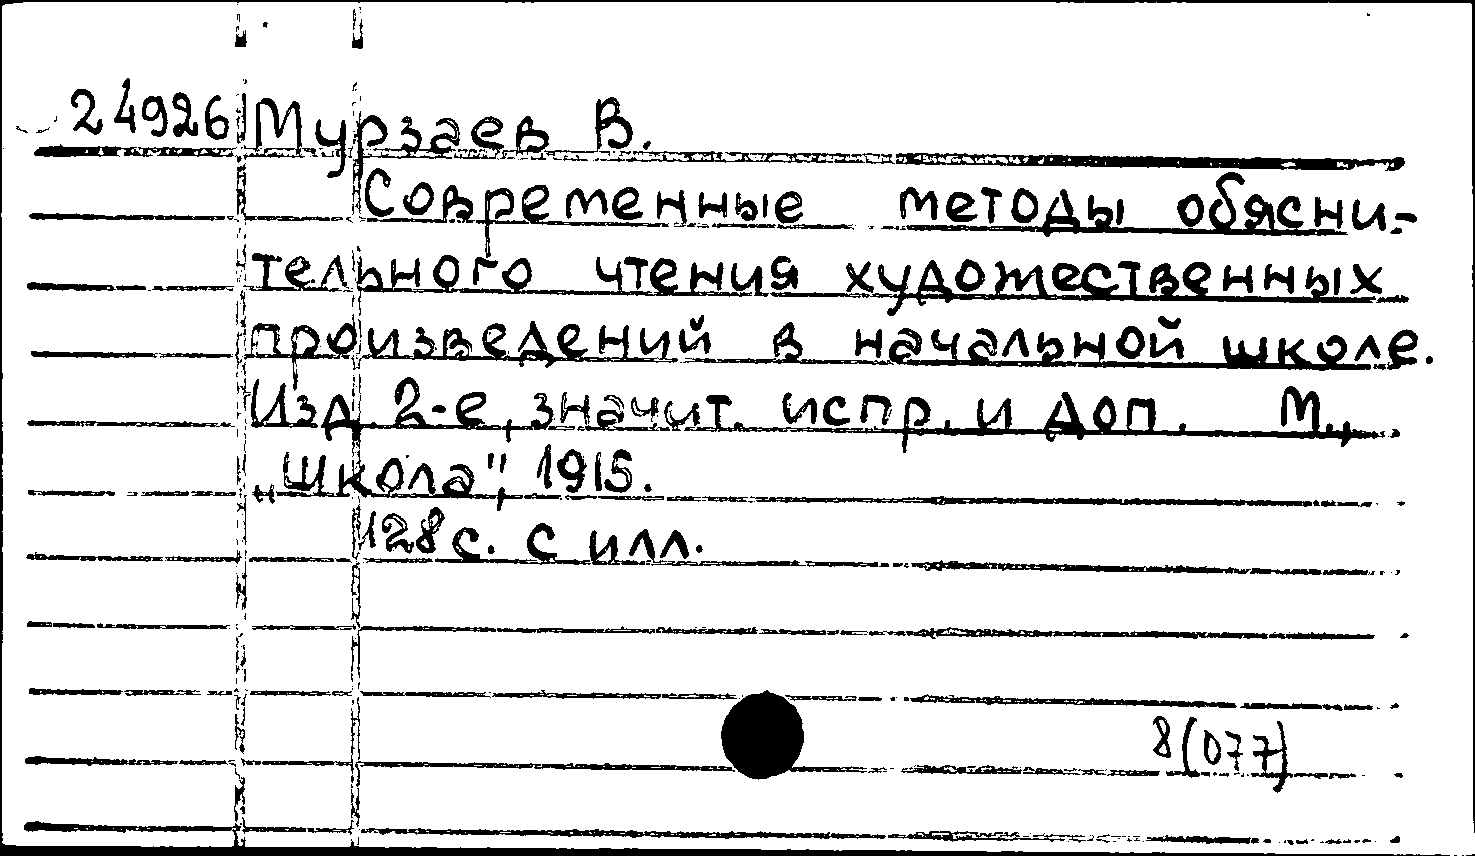 24926 Мурзаев В.
Современные методы обясни-
тельного чтения художественных
произведений в начальной школе.
Изд. 2-е, значит. испр. и доп. М.,
„Школа", 1915.
128 с. с илл.
8(077)